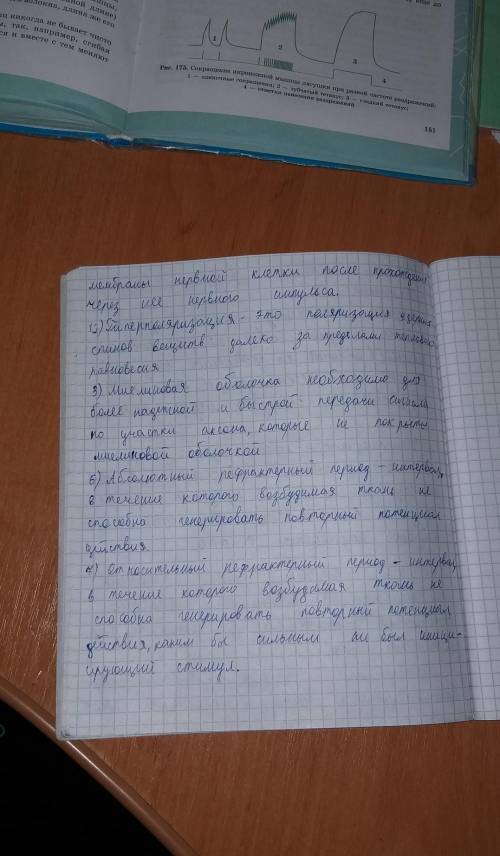 мышцы,
ной длине)
волокна, длина же его
ц никогда не бывает чисто
ы, так, например, сгибая
ся и вместе с тем меняют
еще до
1
2
3
4
Рис. 175. Сокращение икроножной мышцы лягушки при разной частоте раздражений:
1 — одиночные сокращения; 2 — зубчатый тетанус; 3 — гладкий тетанус;
4 — отметки нанесения раздражений
151
мембраны нервной клетки после прохождения
через нее нервного импульса.
Гиперполяризация - это поляризация ядерных
спинов веществ далеко за пределами теплового
равновесия
3) Миелиновая оболочка необходима для
более надежной и быстрой передачи сигнала
по участки аксона, которые не покрыты
миелиновой оболочкой
6) Абсолютный рефрактерный период - интервал,
в течение которого возбудимая ткань не
способна генерировать повторный потенциал
действия.
7) Относительный рефрактерный период - интервал,
в течение которого возбудимая ткань не
способна генерировать повторный потенциал
действия, каким бы сильным ни был иници-
ирующий стимул.